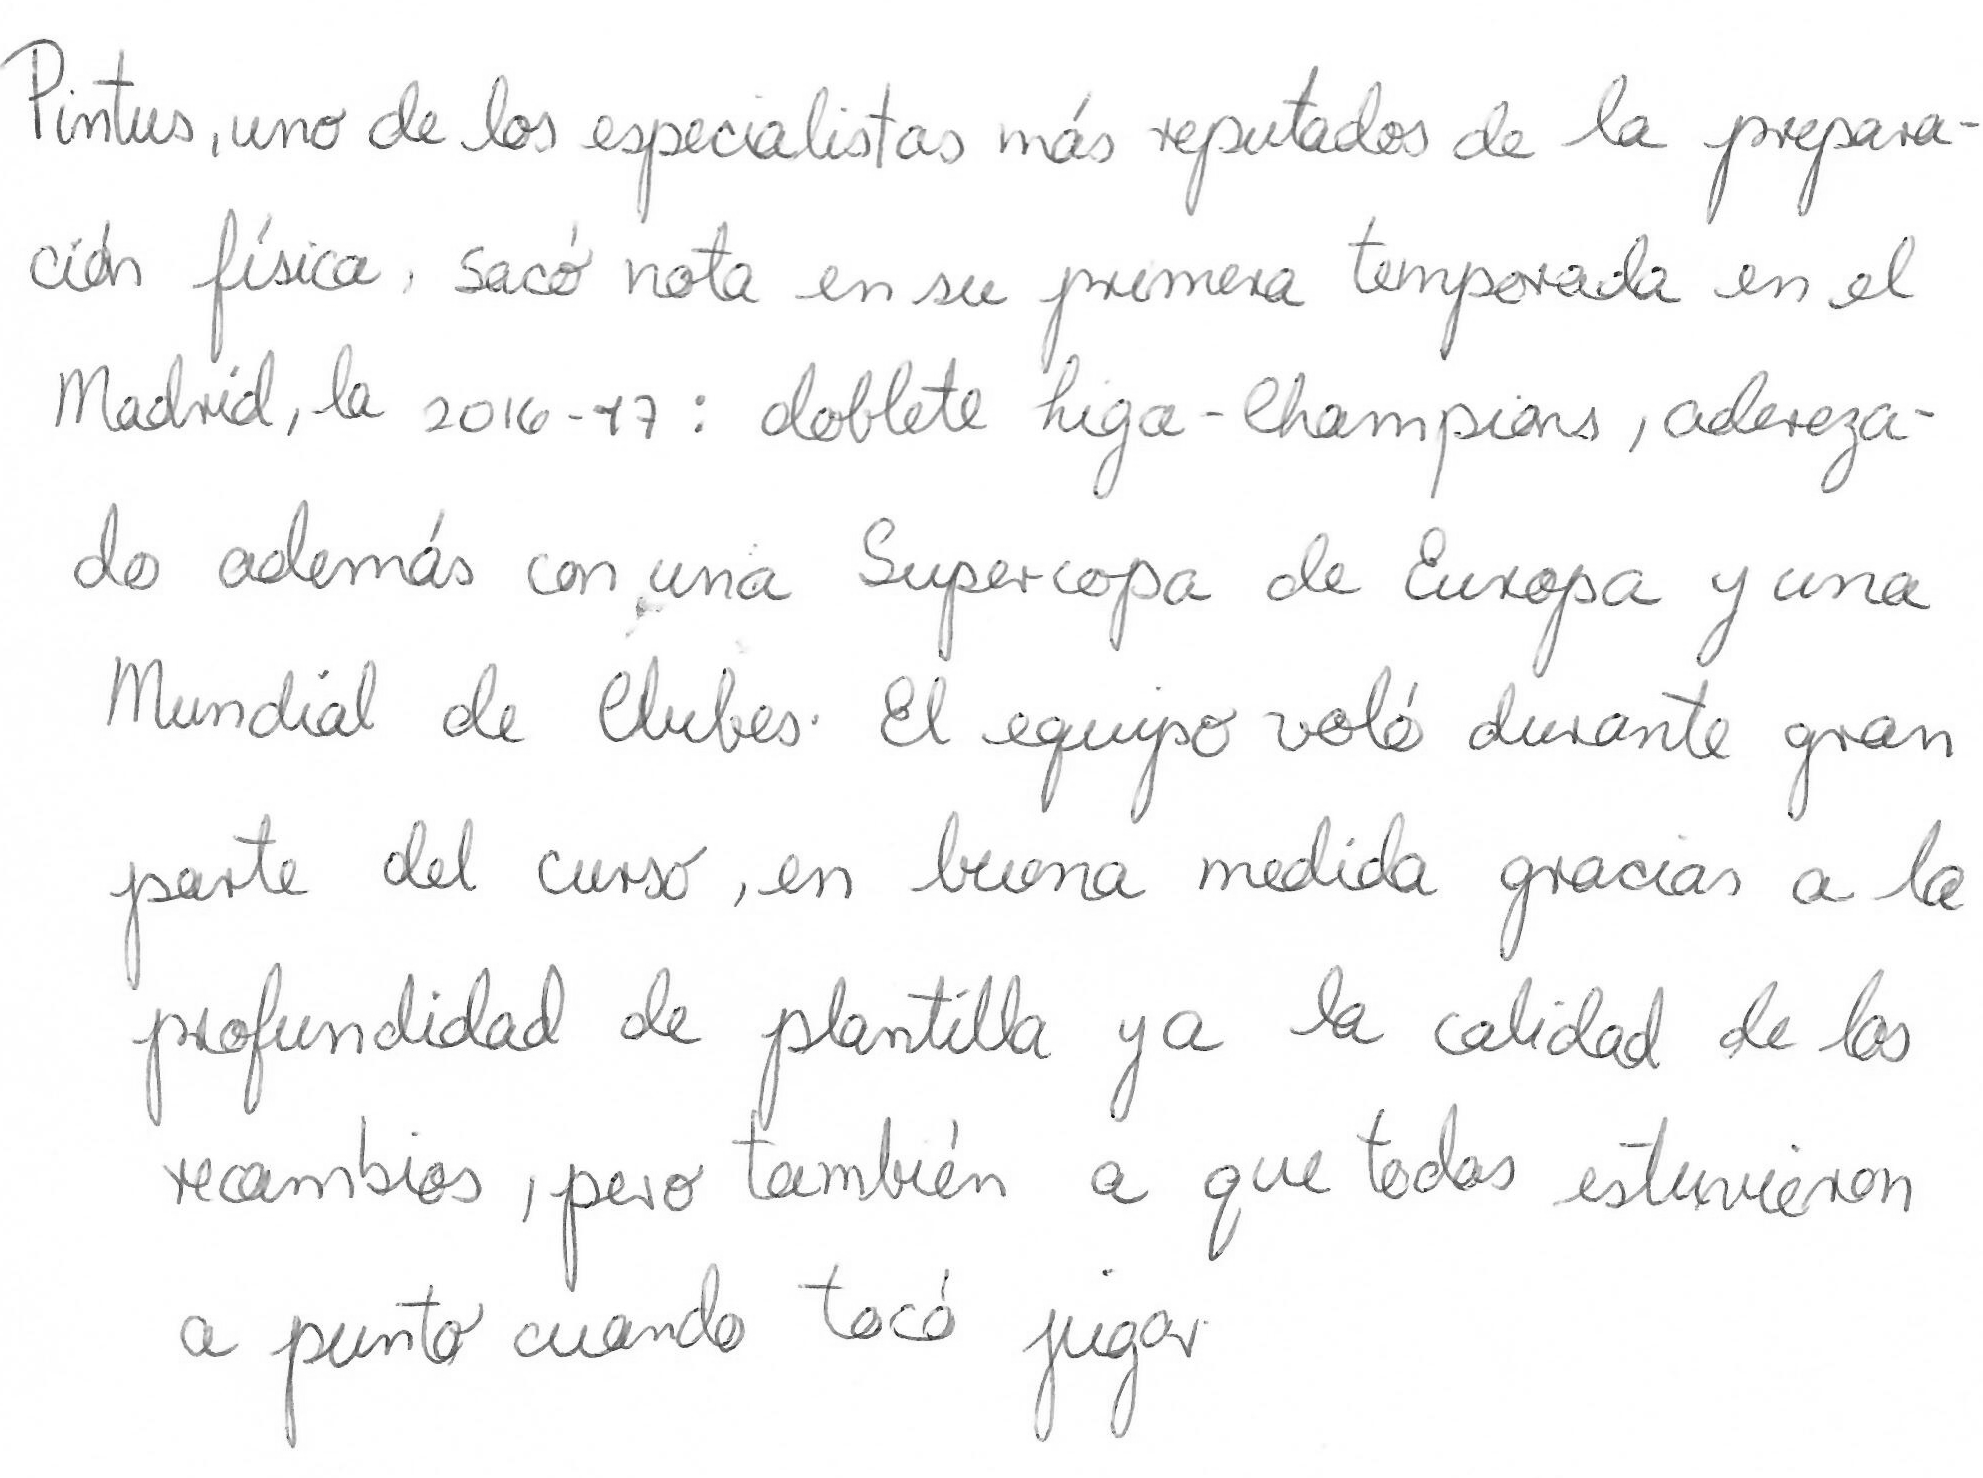 Pintus, uno de los especialistas más reputados de la prepara-
ción física, sacó nota en su primera temporada en el
Madrid, la 2016-17: doblete liga-Champions, adereza-
do además con una Supercopa de Europa y una
Mundial de Clubes. El equipo voló durante gran
parte del curso, en buena medida gracias a la
profundidad de plantilla y a la calidad de los
recambios, pero también a que todos estuvieron
a punto cuando tocó jugar.